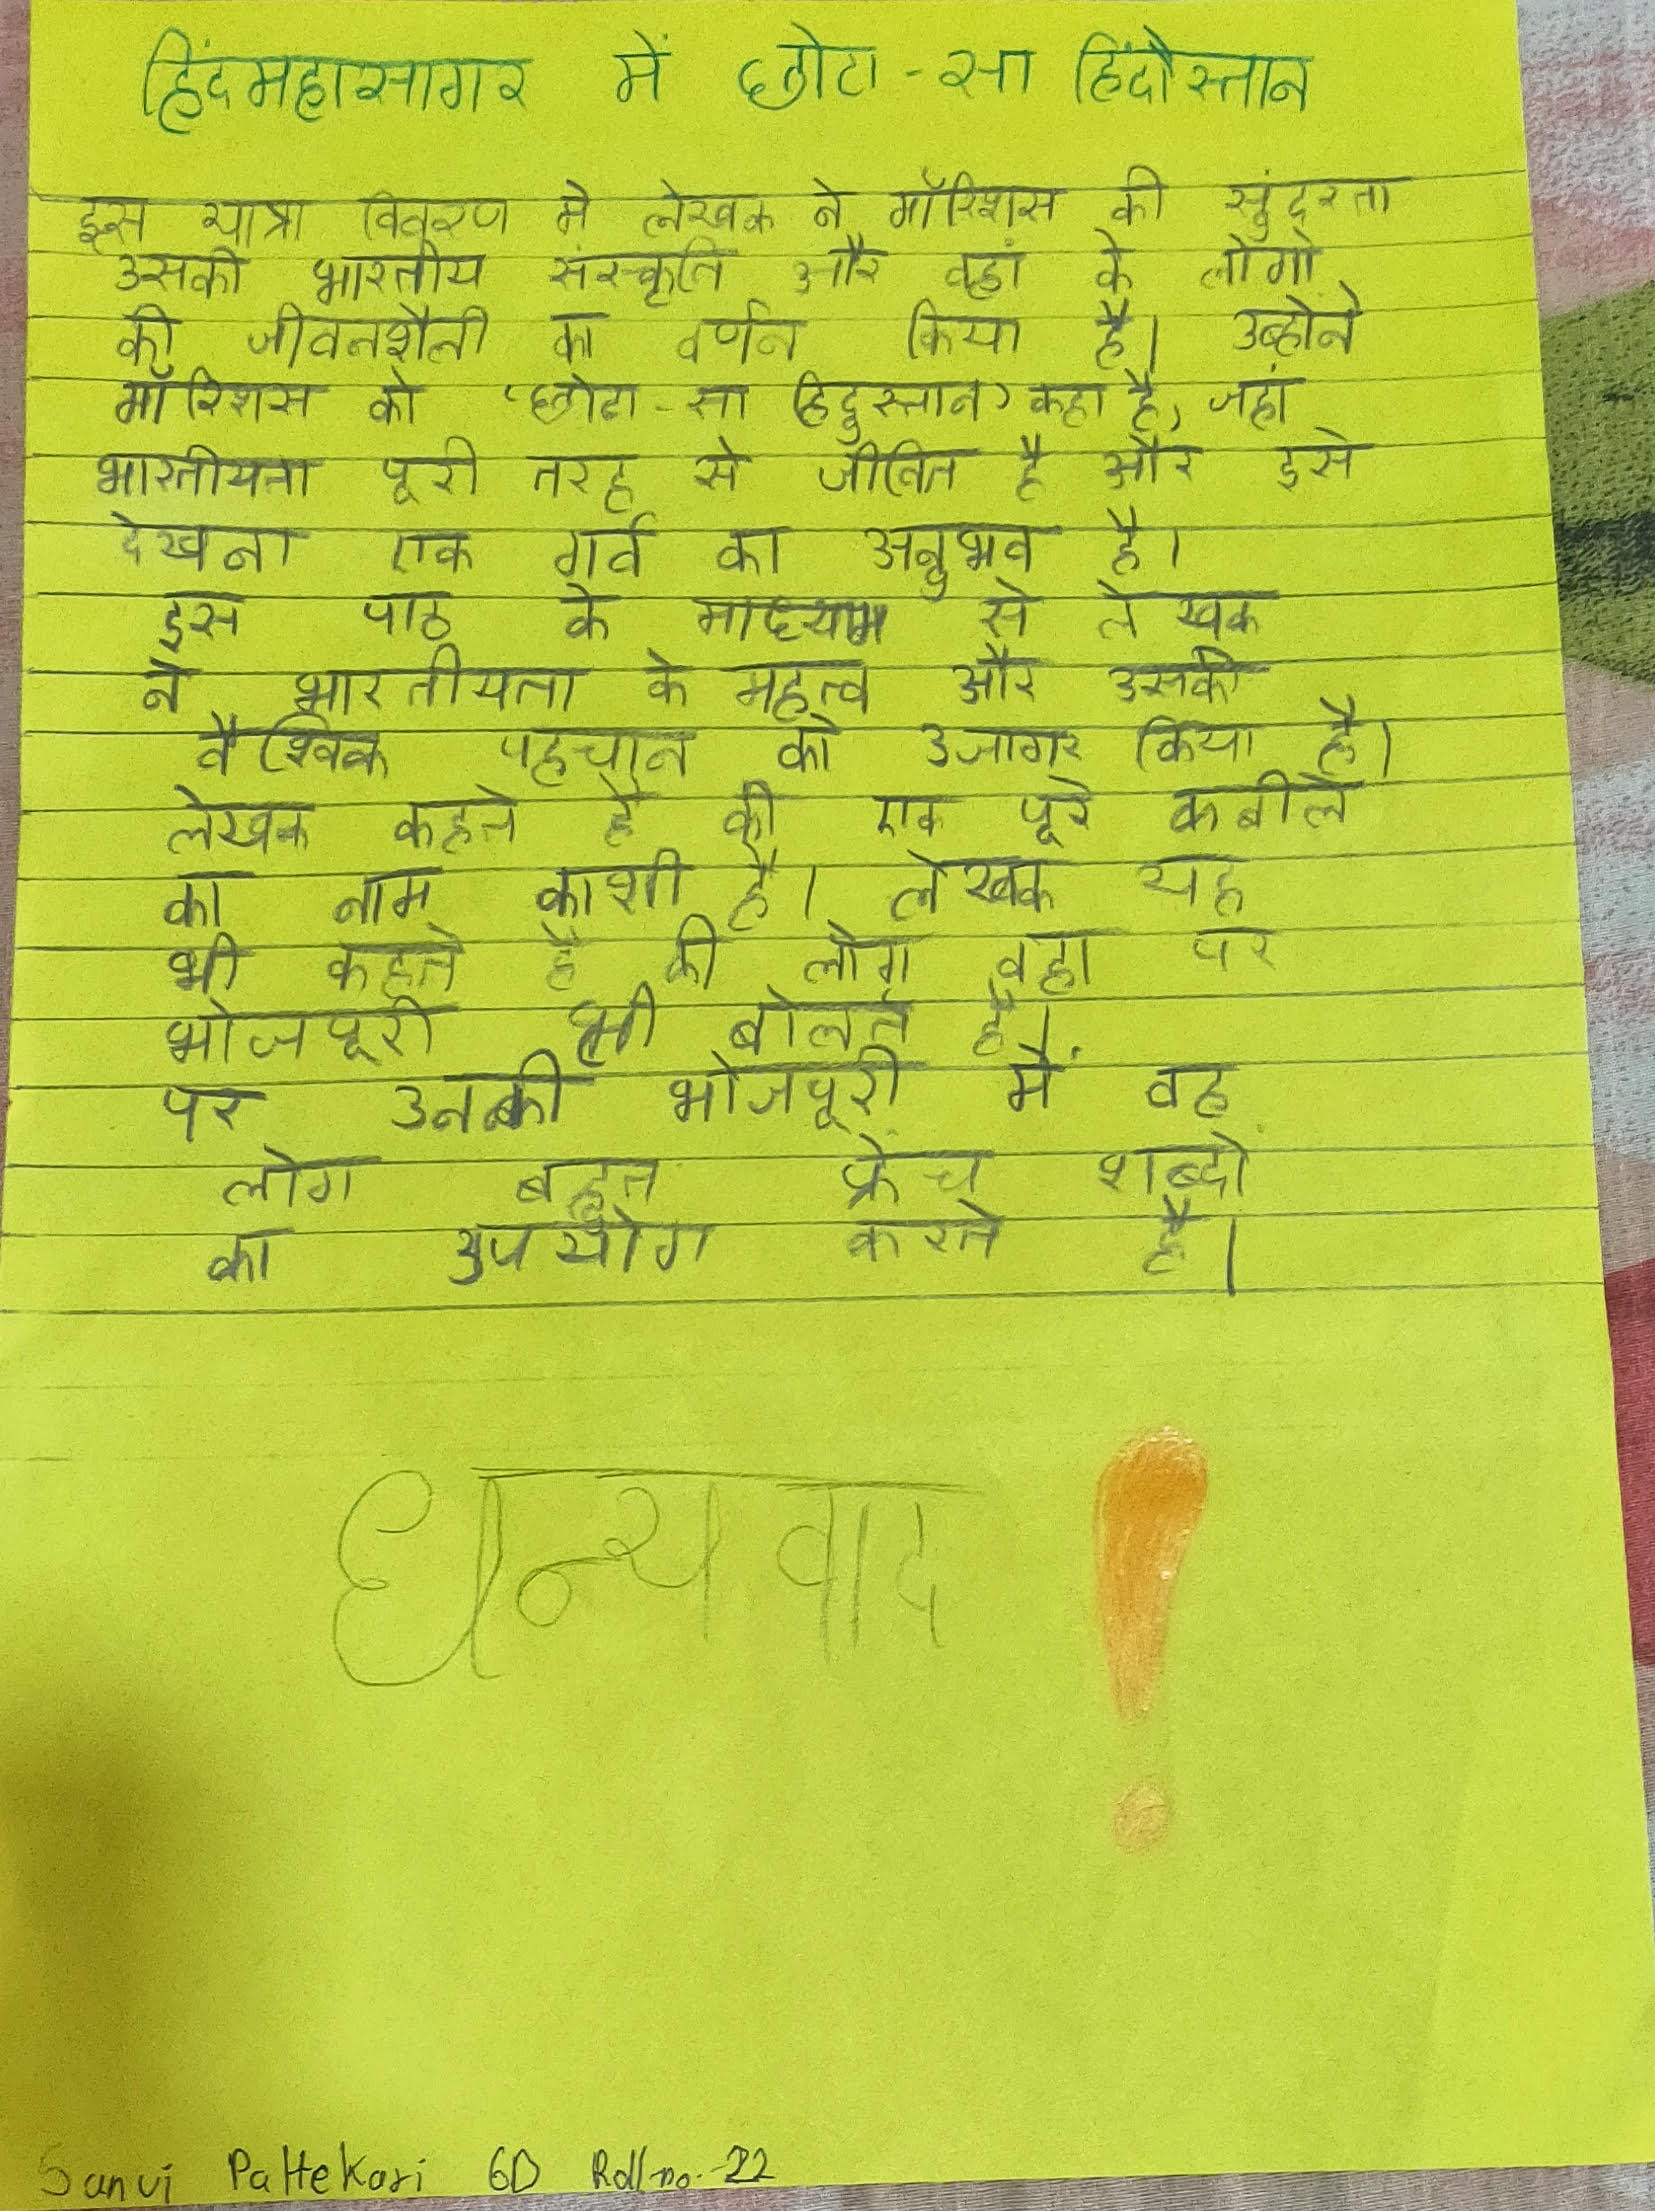 हिंदमहासागर में छोटा-सा हिंदोस्तान
इस यात्रा विवरण मे लेखक ने मॉरिशस की सुंदरता
उसकी भारतीय संस्कृति और वहां के लोगो
की जीवनशैली का वर्णन किया है। उन्होंने
मॉरिशस को 'छोटा-सा हिंदुस्तान' कहा है, जहां
भारतीयता पूरी तरह से जीवित है और इसे
देखना एक गर्व का अनुभव है।
इस पाठ के माध्याम से लेखक
ने भारतीयता के महत्व और उसकी
वैश्विक पहचान को उजागर किया है।
लेखक कहते है की एक पूरे कबीले
का नाम काशी है। लेखक यह
भी कहते है की लोग वहा पर
भोजपूरी भी बोलते है।
पर उनकी भोजपूरी में वह
लोग बहुत फ्रेंच शब्दो
का उपयोग करते है।
धन्यवाद !
Sanvi Pattekari 6D Roll no.-22